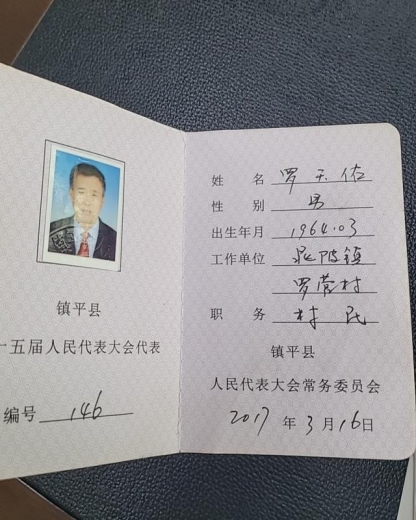 镇平县
十五届人民代表大会代表
编号 146
姓 名 罗天佑
性 别 男
出生年月 1964.03
工作单位 晁陂镇
罗营村
职 务 村民
镇平县
人民代表大会常务委员会
2017 年 3 月 16 日